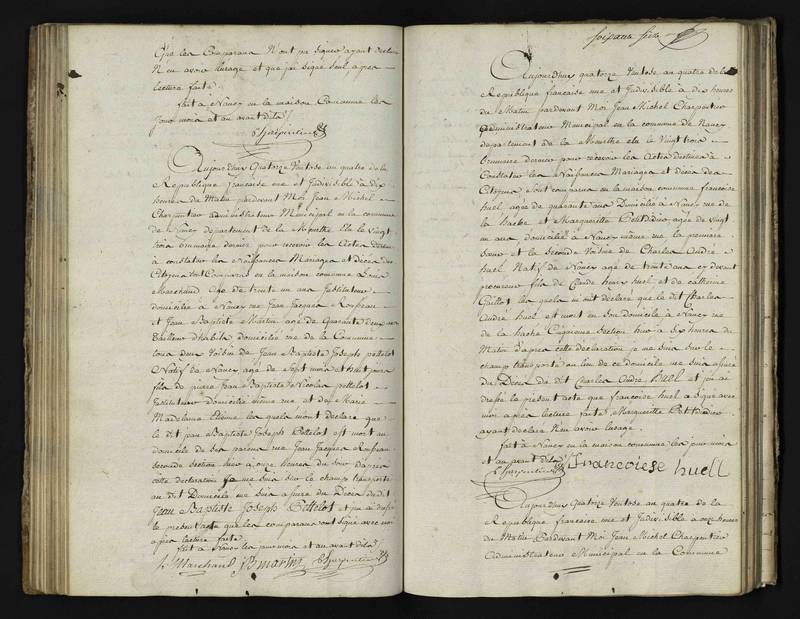 que les Comparans N'ont pu signer ayant declaré
N'en avoir l'usage et que j'ai signé seul, apres
lecture faite
fait à Nancy en la maison Commune les
jour mois et an avant dits
Charpentier
Aujourdhuy Quatorze Ventose an quatre de la
Republique francaise une et Indivisible à dix
heures du Matin pardevant Moi Jean Michel
Charpentier administrateur Municipal en la commune
de Nancy departement de la Meurthe Elu le vingt
trois brumaire dernier pour recevoir les Actes destinés
à constater les Naissances Mariages et décès des
Citoyens sont Comparus en la maison commune Louis
Marchand age de trente un ans Instituteur
domicilié à Nancy rue Jean Jacques Rousseau
et Jean Baptiste Martin agé de Quarante deux ans
tailleur d'habits domicilié rue de la Commune
tous deux voisins de Jean Baptiste Joseph pottelot
Natif de Nancy agé de Sept mois et huit jours
fils de Jean Baptiste Nicolas pottelot
Instituteur domicilié même rue et de Marie
Madelaine les quels m'ont declaré que
le dit Jean Baptiste Joseph Pottelot est mort au
domicile de ses parens rue Jean Jacques Rousseau
seconde section hier à onze heures du soir D'apres
cette declaration je me suis sur le champ transporté
au dit Domicile me suis assuré du Décès du dit
Jean Baptiste Joseph Pottelot et j'ai dressé
le présent acte que les comparans ont signé avec moi
apres lecture faite
fait à Nancy les jour mois et an avant dits
L Marchand JB martin Charpentier
soixante seize
Aujourdhuy quatorze Ventose an quatre de la
République francaise une et Indivisible à dix heures
du Matin pardevant Moi Jean Michel Charpentier
administrateur Municipal en la commune de Nancy
departement de la Meurthe elu le Vingt trois
brumaire dernier pour recevoir les Actes destinés à
Constater les Naissances Mariages et décès des
Citoyens sont comparus en la maison commune francoise
huel agée de quarante ans Domiciliée à Nancy rue de
la hache et Marguerite Petitdidier agée de vingt
un ans domiciliée à Nancy même rue la premiere
Sœur et la seconde Voisine de Charles André
huel Natif de Nancy agé de trente ans cy devant
procureur fils de Claude henry huel et de catherine
Guillot les quels m'ont déclaré que le dit Charles
André huel est mort en son domicile à Nancy rue
de la hache Cinquieme Section hier à dix heures du
Matin d'après cette déclaration je me suis sur le
champ transporté au lieu de ce domicile me suis assuré
du Décès du dit Charles André huel et j'ai
dressé le présent acte que francoise huel a signé avec
moi après lecture faite Marguerite Petitdidier
ayant déclaré N'en avoir l'usage.
fait à Nancy en la maison commune les jour mois
et an avant dits
Charpentier francoiese huell
Aujourdhuy Quatorze Ventose an quatre de la
République francaise une et Indivisible à onze heures
du Matin Pardevant Moi Jean Michel Charpentier
administrateur Municipal en la Commune